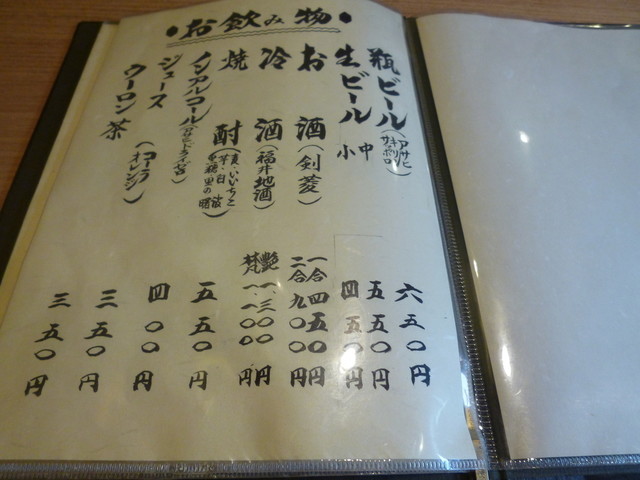 ●お飲み物●
瓶ビール（アサヒ キリン サッポロ） 六五〇円
生ビール 中 五五〇円
小 四五〇円
お酒（剣菱） 一合 四五〇円
二合 九〇〇円
冷酒（福井地酒） 艶 一、三〇〇円
梵 一、一〇〇円
焼酎（麦 いいちこ 芋 白波 黒糖 里の曙） 五五〇円
ノンアルコール（ドライゼロ） 四〇〇円
ジュース（コーラ オレンジ） 三五〇円
ウーロン茶 三五〇円